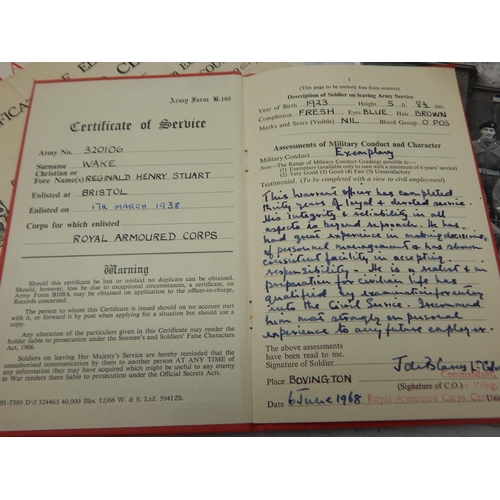 Army Form B.108
Certificate of Service
Army No. 320106
Surname WAKE
Christian or
Fore Name(s) REGINALD HENRY STUART
Enlisted at BRISTOL
Enlisted on 17th MARCH 1938
Corps for which enlisted
ROYAL ARMOURED CORPS
Warning
Should this certificate be lost or mislaid no duplicate can be obtained.
Should, however, loss be due to exceptional circumstances, a certificate, on
Army Form B108A may be obtained on application to the officer-in-charge,
Records concerned.
The person to whom this certificate is issued should on no account part
with it, or forward it by post when applying for a situation but should use a
copy.
Any alteration of the particulars given in this Certificate may render the
holder liable to prosecution under the Seamen's and Soldiers' False Characters
Act, 1906.
Soldiers on leaving Her Majesty's Service are hereby reminded that the
unauthorised communication by them to another person AT ANY TIME of
any information they may have acquired which might be useful to any enemy
in War renders them liable to prosecution under the Official Secrets Acts.
D'd 324463 40,000 Bks. 12/66 W. & S. Ltd. 594129.
1
(This page to be entirely free from erasure)
Description of Soldier on leaving Army Service
Year of Birth 1923 Height 5 ft. 8½ ins.
Complexion FRESH Eyes BLUE Hair BROWN
Marks and Scars (Visible) NIL Blood Group O POS
Assessments of Military Conduct and Character
Military Conduct Exemplary
Note:—The Range of Military Conduct Gradings possible is:—
(1) Exemplary (awardable only to men with a minimum of 6 years' service)
(2) Very Good (3) Good (4) Fair (5) Unsatisfactory
Testimonial. (To be completed with a view to civil employment)
This Warrant officer has completed
thirty years of loyal & devoted service.
His integrity & reliability in all
aspects is beyond reproach. He has
had great experience in making decisions,
of personnel management & has shown
consistent facility in accepting
responsibility. He is a realist & in
preparation for civilian life has
qualified by examination for entry
into the Civil Service. I recommend
him most strongly on personal
experience to any future employer.
The above assessments
have been read to me.
Signature of Soldier
Commandant
Place BOVINGTON (Signature of C.O.) Wing,
Date 6 June 1968 Royal Armoured Corps Cen